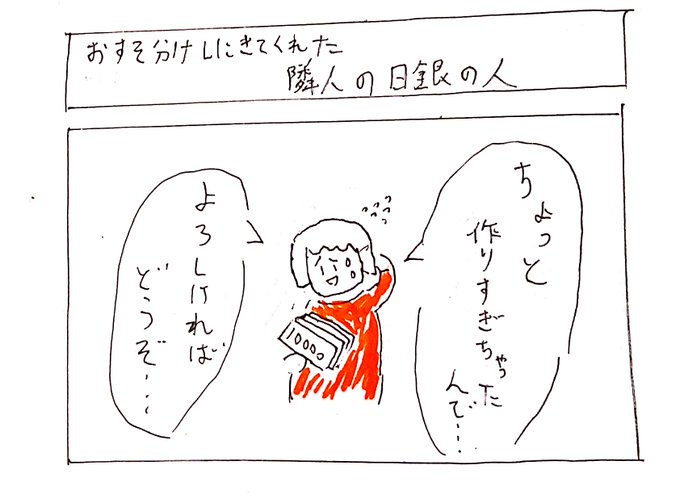 おすそ分けしにきてくれた
隣人の日銀の人
ちょっと
作りすぎちゃった
んで…
よろしければ
どうぞ…
10000